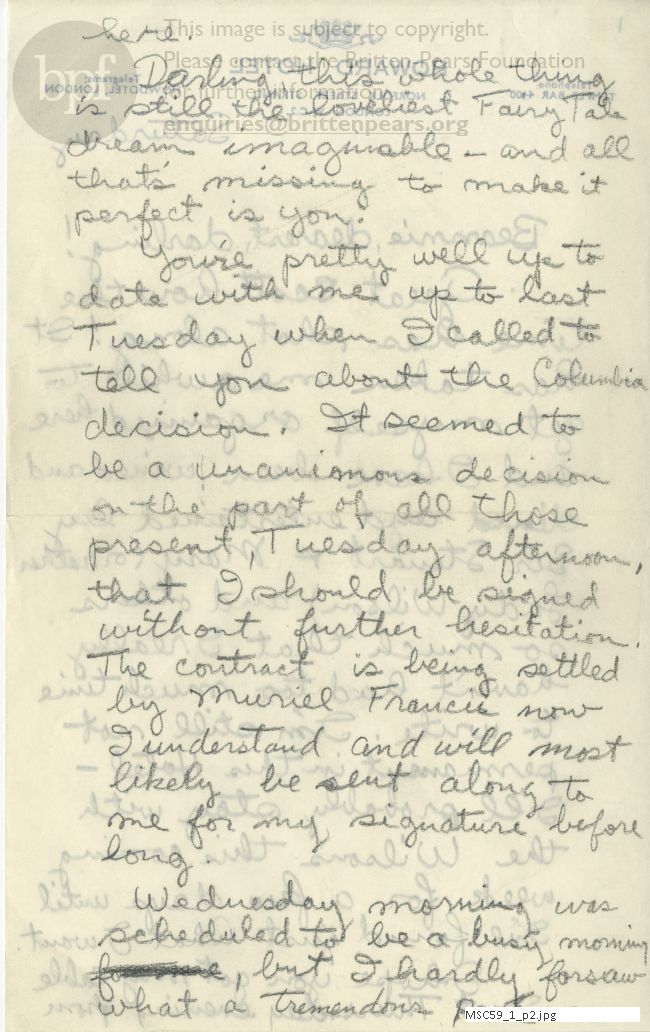 here.
Darling this whole thing
is still the loveliest Fairy Tale
dream imaginable - and all
that's missing to make it
perfect is you.
You're pretty well up to
date with me up to last
Tuesday when I called to
tell you about the Columbia
decision. It seemed to
be a unanimous decision
on the part of all those
present, Tuesday afternoon,
that I should be signed
without further hesitation.
The contract is being settled
by Muriel Francis now
I understand and will most
likely be sent along to
me for my signature before
long.
Wednesday morning was
scheduled to be a busy morning
for me, but I hardly forsaw
what a tremendous
This image is subject to copyright.
Please contact the Britten-Pears Foundation
for further information:
enquiries@brittenpears.org
bpf
MSC59_1_p2.jpg